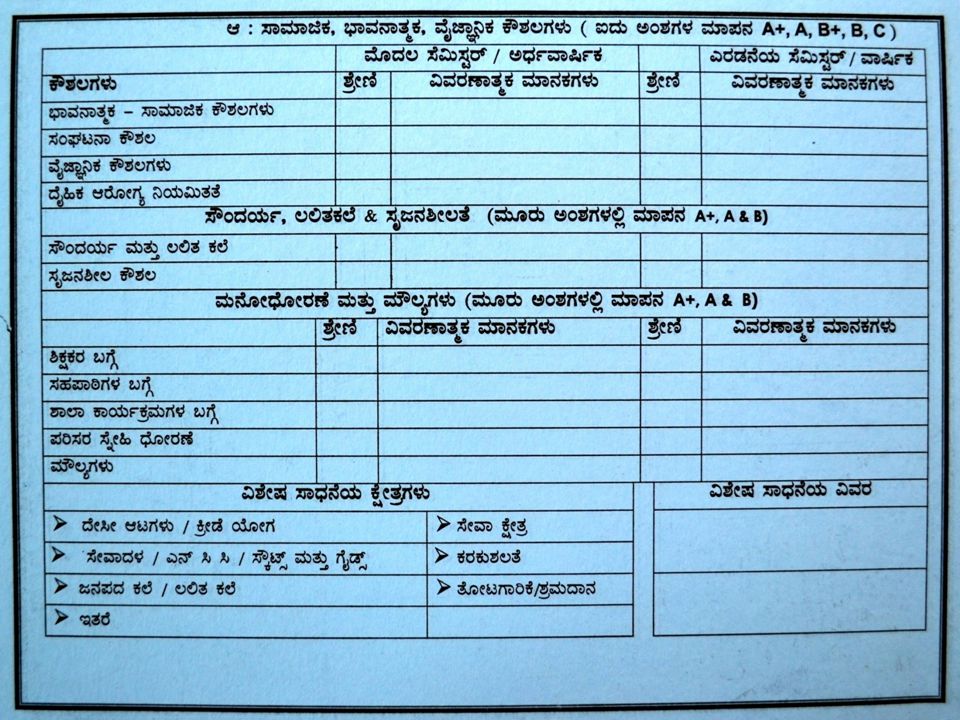 ಆ : ಸಾಮಾಜಿಕ, ಭಾವನಾತ್ಮಕ, ವೈಜ್ಞಾನಿಕ ಕೌಶಲಗಳು ( ಐದು ಅಂಶಗಳ ಮಾಪನ A+, A, B+, B, C )
ಮೊದಲ ಸೆಮಿಸ್ಟರ್ / ಅರ್ಧವಾರ್ಷಿಕ ಎರಡನೆಯ ಸೆಮಿಸ್ಟರ್ / ವಾರ್ಷಿಕ
ಕೌಶಲಗಳು ಶ್ರೇಣಿ ವಿವರಣಾತ್ಮಕ ಮಾನಕಗಳು ಶ್ರೇಣಿ ವಿವರಣಾತ್ಮಕ ಮಾನಕಗಳು
ಭಾವನಾತ್ಮಕ – ಸಾಮಾಜಿಕ ಕೌಶಲಗಳು
ಸಂಘಟನಾ ಕೌಶಲ
ವೈಜ್ಞಾನಿಕ ಕೌಶಲಗಳು
ದೈಹಿಕ ಆರೋಗ್ಯ ನಿಯಮಿತತೆ
ಸೌಂದರ್ಯ, ಲಲಿತಕಲೆ & ಸೃಜನಶೀಲತೆ (ಮೂರು ಅಂಶಗಳಲ್ಲಿ ಮಾಪನ A+, A & B)
ಸೌಂದರ್ಯ ಮತ್ತು ಲಲಿತ ಕಲೆ
ಸೃಜನಶೀಲ ಕೌಶಲ
ಮನೋಧೋರಣೆ ಮತ್ತು ಮೌಲ್ಯಗಳು (ಮೂರು ಅಂಶಗಳಲ್ಲಿ ಮಾಪನ A+, A & B)
ಶ್ರೇಣಿ ವಿವರಣಾತ್ಮಕ ಮಾನಕಗಳು ಶ್ರೇಣಿ ವಿವರಣಾತ್ಮಕ ಮಾನಕಗಳು
ಶಿಕ್ಷಕರ ಬಗ್ಗೆ
ಸಹಪಾಠಿಗಳ ಬಗ್ಗೆ
ಶಾಲಾ ಕಾರ್ಯಕ್ರಮಗಳ ಬಗ್ಗೆ
ಪರಿಸರ ಸ್ನೇಹಿ ಧೋರಣೆ
ಮೌಲ್ಯಗಳು
ವಿಶೇಷ ಸಾಧನೆಯ ಕ್ಷೇತ್ರಗಳು ವಿಶೇಷ ಸಾಧನೆಯ ವಿವರ
➢ ದೇಸೀ ಆಟಗಳು / ಕ್ರೀಡೆ ಯೋಗ ➢ ಸೇವಾ ಕ್ಷೇತ್ರ
➢ ಸೇವಾದಳ / ಎನ್ ಸಿ ಸಿ / ಸ್ಕೌಟ್ಸ್ ಮತ್ತು ಗೈಡ್ಸ್ ➢ ಕರಕುಶಲತೆ
➢ ಜನಪದ ಕಲೆ / ಲಲಿತ ಕಲೆ ➢ ತೋಟಗಾರಿಕೆ/ಶ್ರಮದಾನ
➢ ಇತರೆ